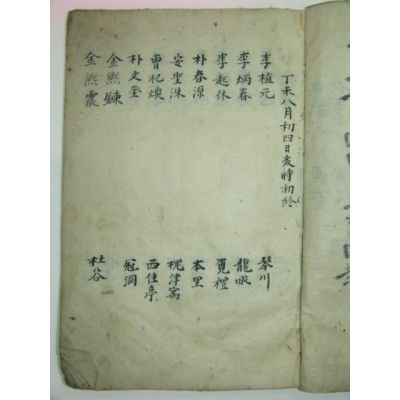 丁未八月初四日亥時初終
李植元 琴川
李炳春 龍
李起休 禮
朴春源 本里
安聖洙 槐津寓
曹杞煥 西佳亭
朴文奎 冠洞
金熙鍊
金熙震 杜谷